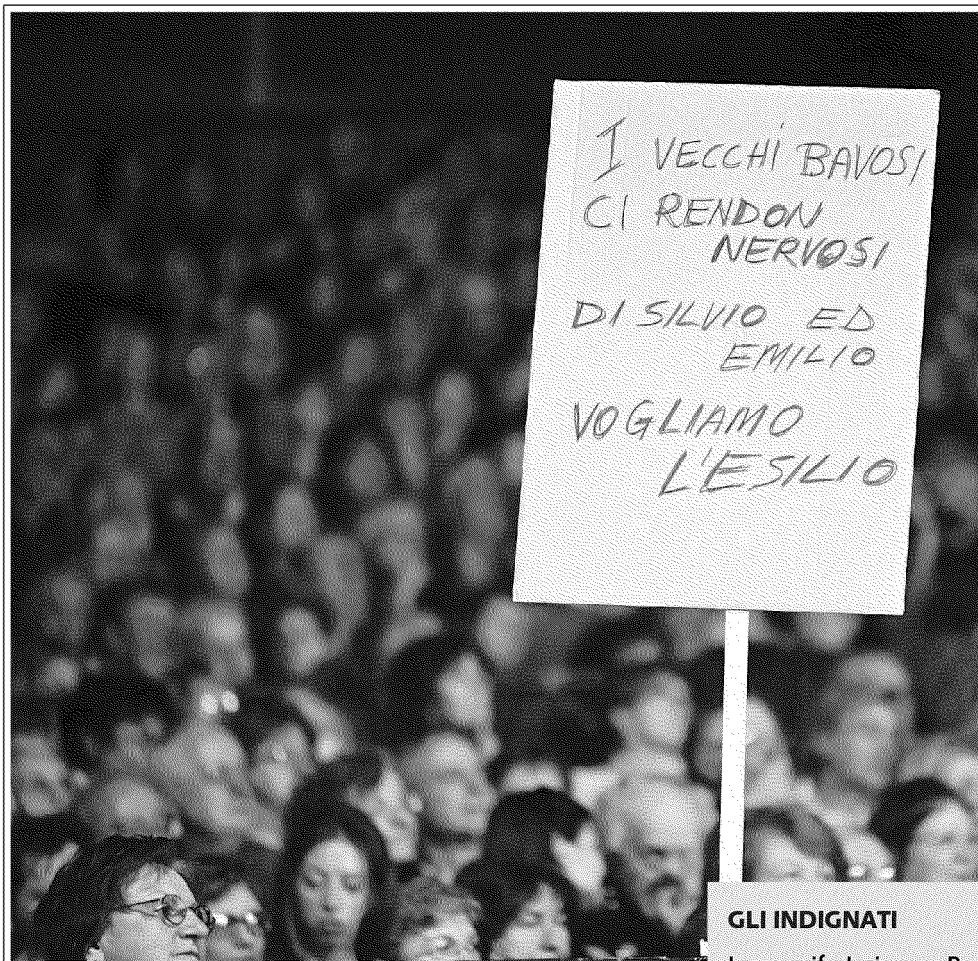 I VECCHI BAVOSI
CI RENDON
NERVOSI
DI SILVIO ED
EMILIO
VOGLIAMO
L'ESILIO
GLI INDIGNATI